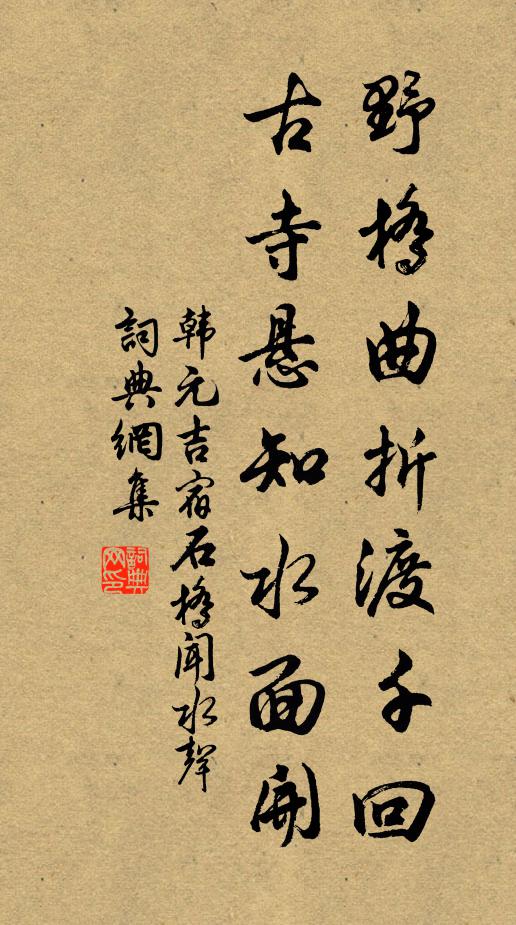 野橋曲折渡千回
古寺悬知水面開
韩元吉宿石橋聞水聲
詞典網集
詞典网印